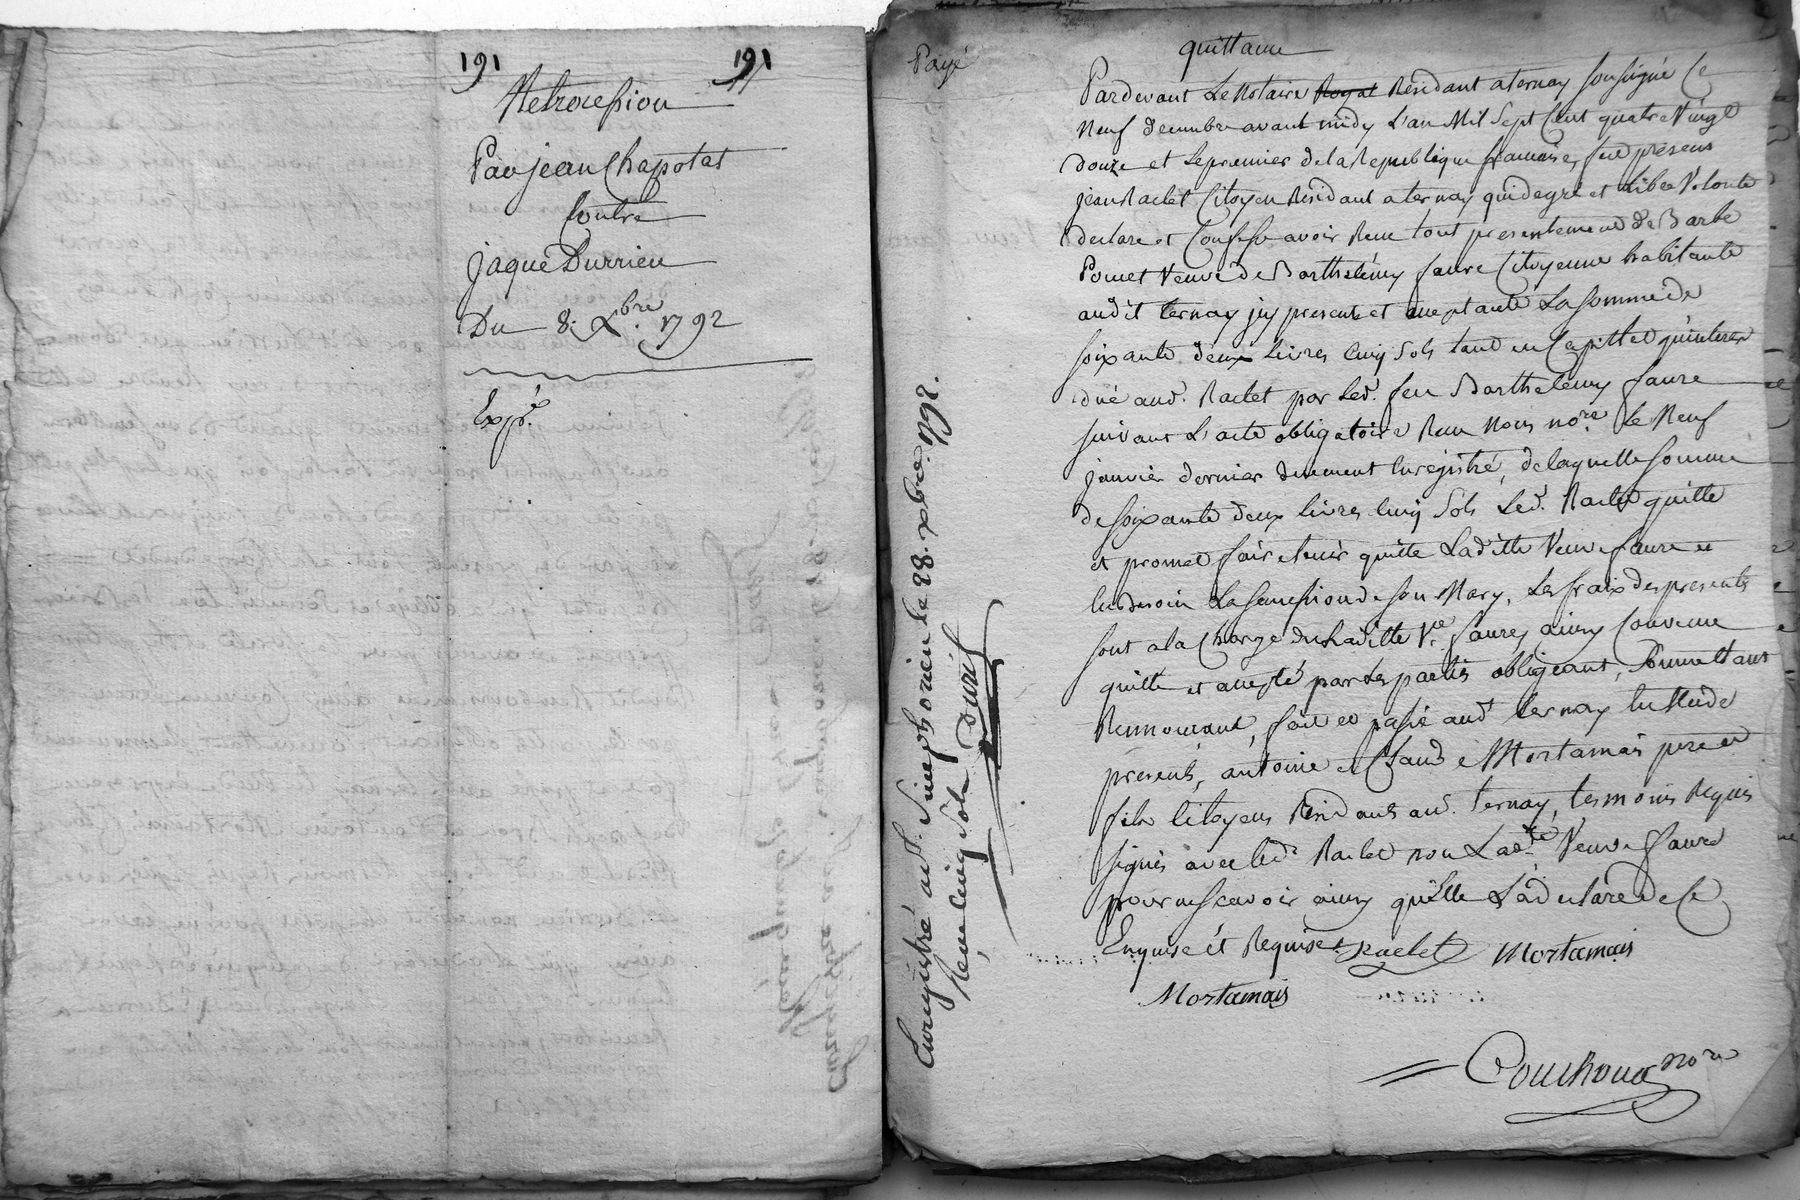 191 191
Retrocession
Par jean Chapotat
Contre
Jaque Durrieu
Du 8. Xbre. 1792
Expé.
Payé
quittance
Pardevant Le Notaire Royal Residant a ternay soussigné Ce
Neuf decembre avant midy L'an Mil Sept Cent quatre Vingt
douze et Lepremier de la Republique francaise, fut présent
jean Raclet Citoyen Résidant a ternay qui de gré et Libre Volonté
declare et Confesse avoir Reçu tout presentement de Barbe
Pomet Veuve de Barthelémy faure Citoyenne habitante
audit ternay jcy presente et acceptante La somme de
soixante deux Livres Cinq Sols tant en Capittal qu'interes
due aud. Raclet par Led. feu Barthelemy faure
suivant L'acte obligatoire Reçu Nous nore. Le Neuf
janvier dernier duement Enregistré, de laquelle somme
de soixante deux Livres Cinq Sols Led. Raclet quitte
et promet faire tenir quitte Laditte Veuve faure et
Au besoin La Succession de son Mary, Les fraix des presentes
sont a la Charge de Laditte Ve. faure, ainsy Convenu
quitté et accepté par Les parties obligeant, Soumettant
Renonceant, fait et passé audt ternay En Etude
presents, antoine et Claude Mortamais pere et
fils Citoyens Residants aud. ternay, tesmoins Requis
signés avec led. Raclet non Ladte Veuve faure
pour ne scavoir ainsy quElle L'a déclaré de Ce
Enquise ét Requise Raclet Mortamais
Mortamais
Couchoud nore
Enregistré a St. Simphorien le 28. xbre. 1792.
Reçu cinq sols Duril